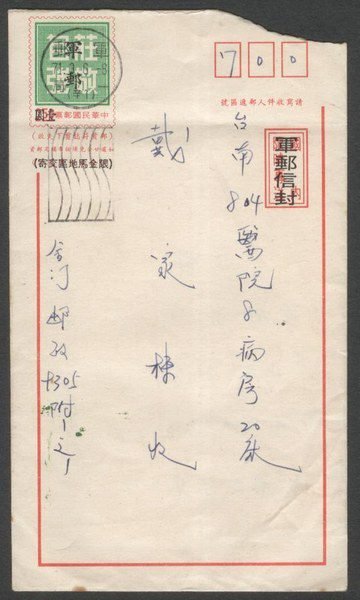 軍郵
莊敬自強
中華民國郵票
(限金馬地區交寄)
700
請寫收件人郵遞區號
軍郵信封
台南804醫院8病房20床
戴家棟收
金門郵政
附1之1